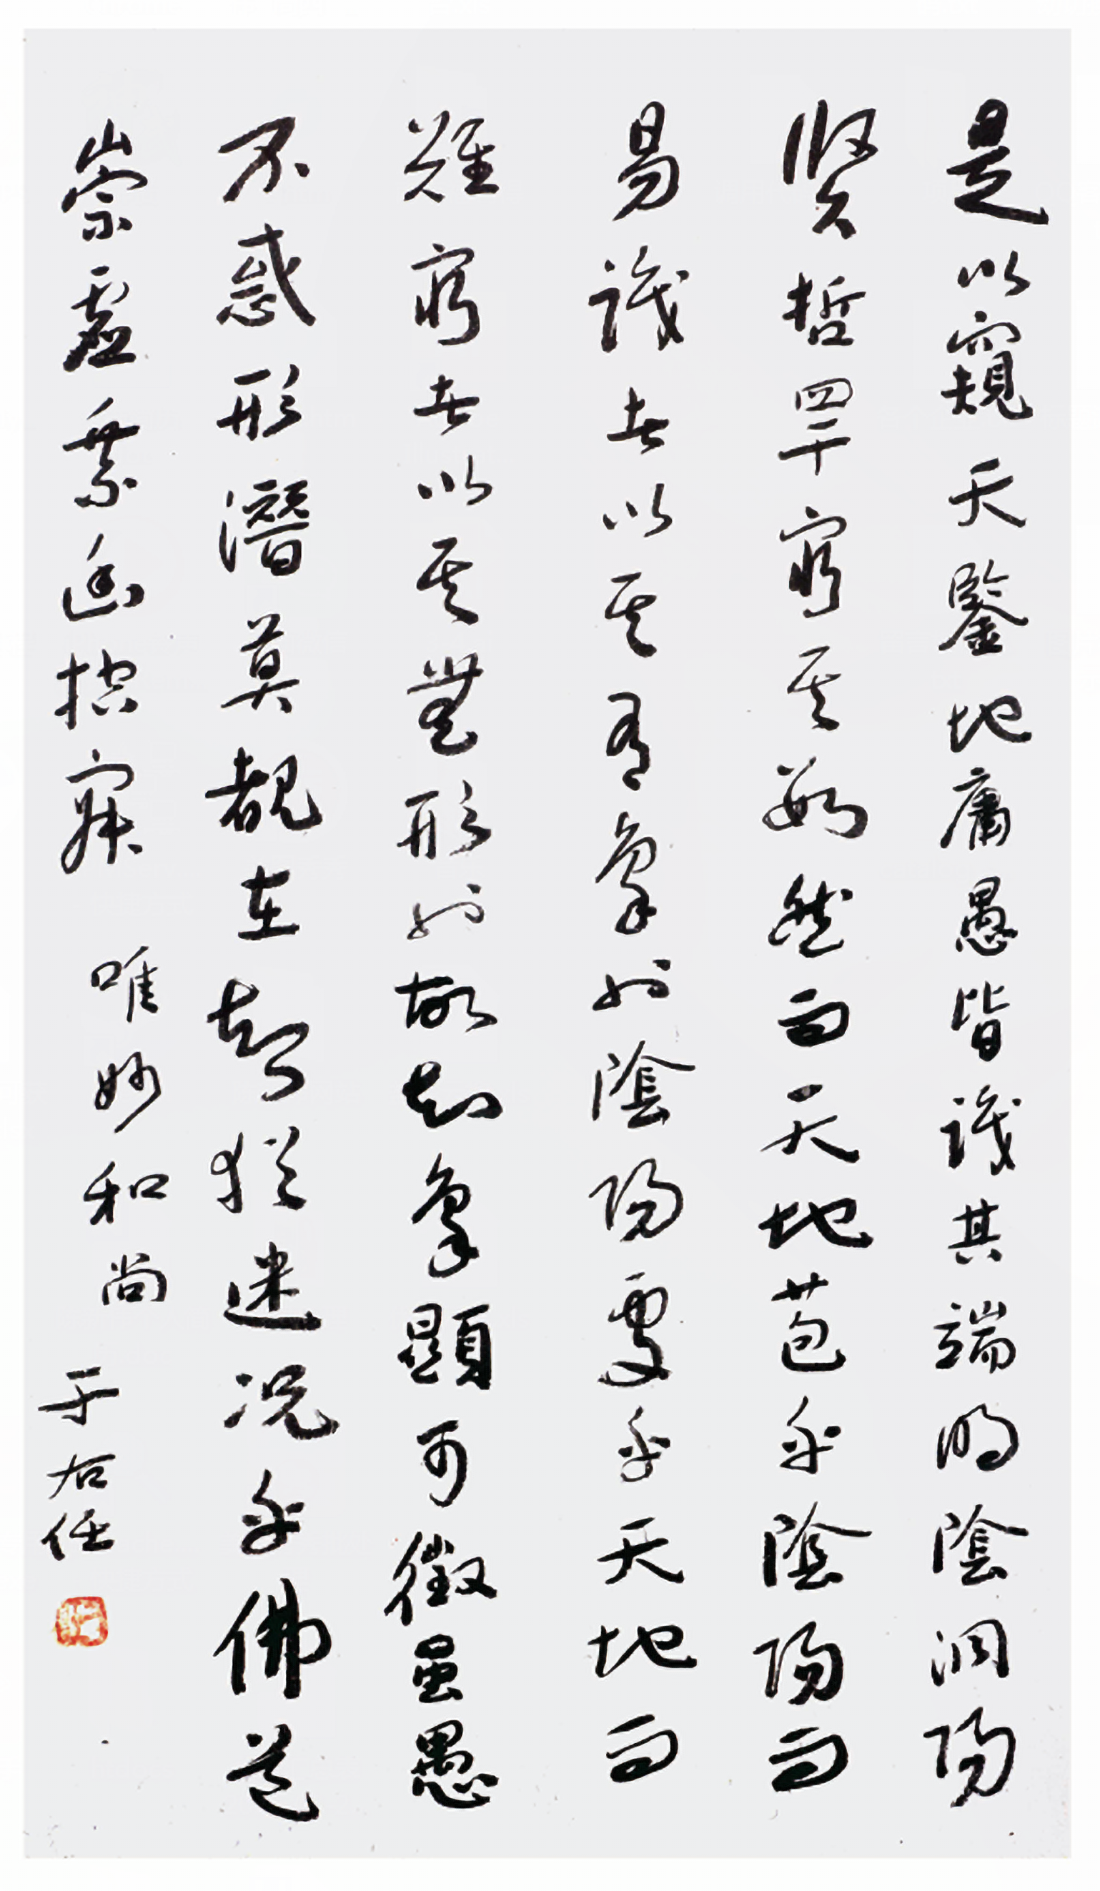 是以窺天鑒地庸愚皆識其端明陰洞陽
賢哲罕窮其數然而天地苞乎陰陽而
易識者以其有象也陰陽處乎天地而
難窮者以其無形也故知象顯可徵雖愚
不惑形潛莫覩在智猶迷況乎佛道
崇虛乘幽控寂
唯妙和尚
于右任